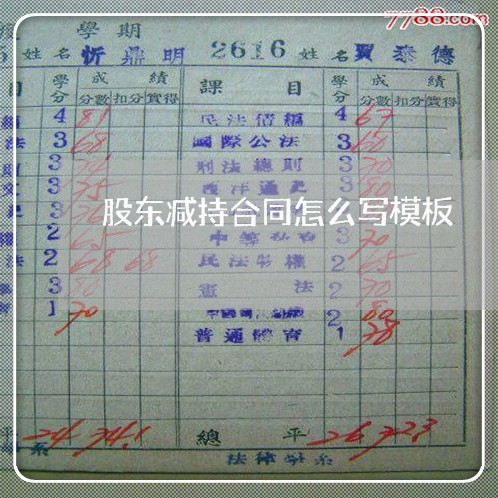 7788.com
學期
姓名 忻鼎明 2616 姓名 賈泰德
目 學分 成績 課目 學分 成績
分數 扣分 實得 分數 扣分 實得
4 81 民法債編 4 67
法 3 68 國際公法 3 60
3 刑法總則 3 70
3 75 西洋通史 3 80
股东减持合同怎么写模板
2 65 3 70
法 2 68 68 民法物權 2 65
3 80 憲法 2 70
1 70 2 80
普通體育 1 78
平 24 74.1 總平 26 72.3
系 法律學系